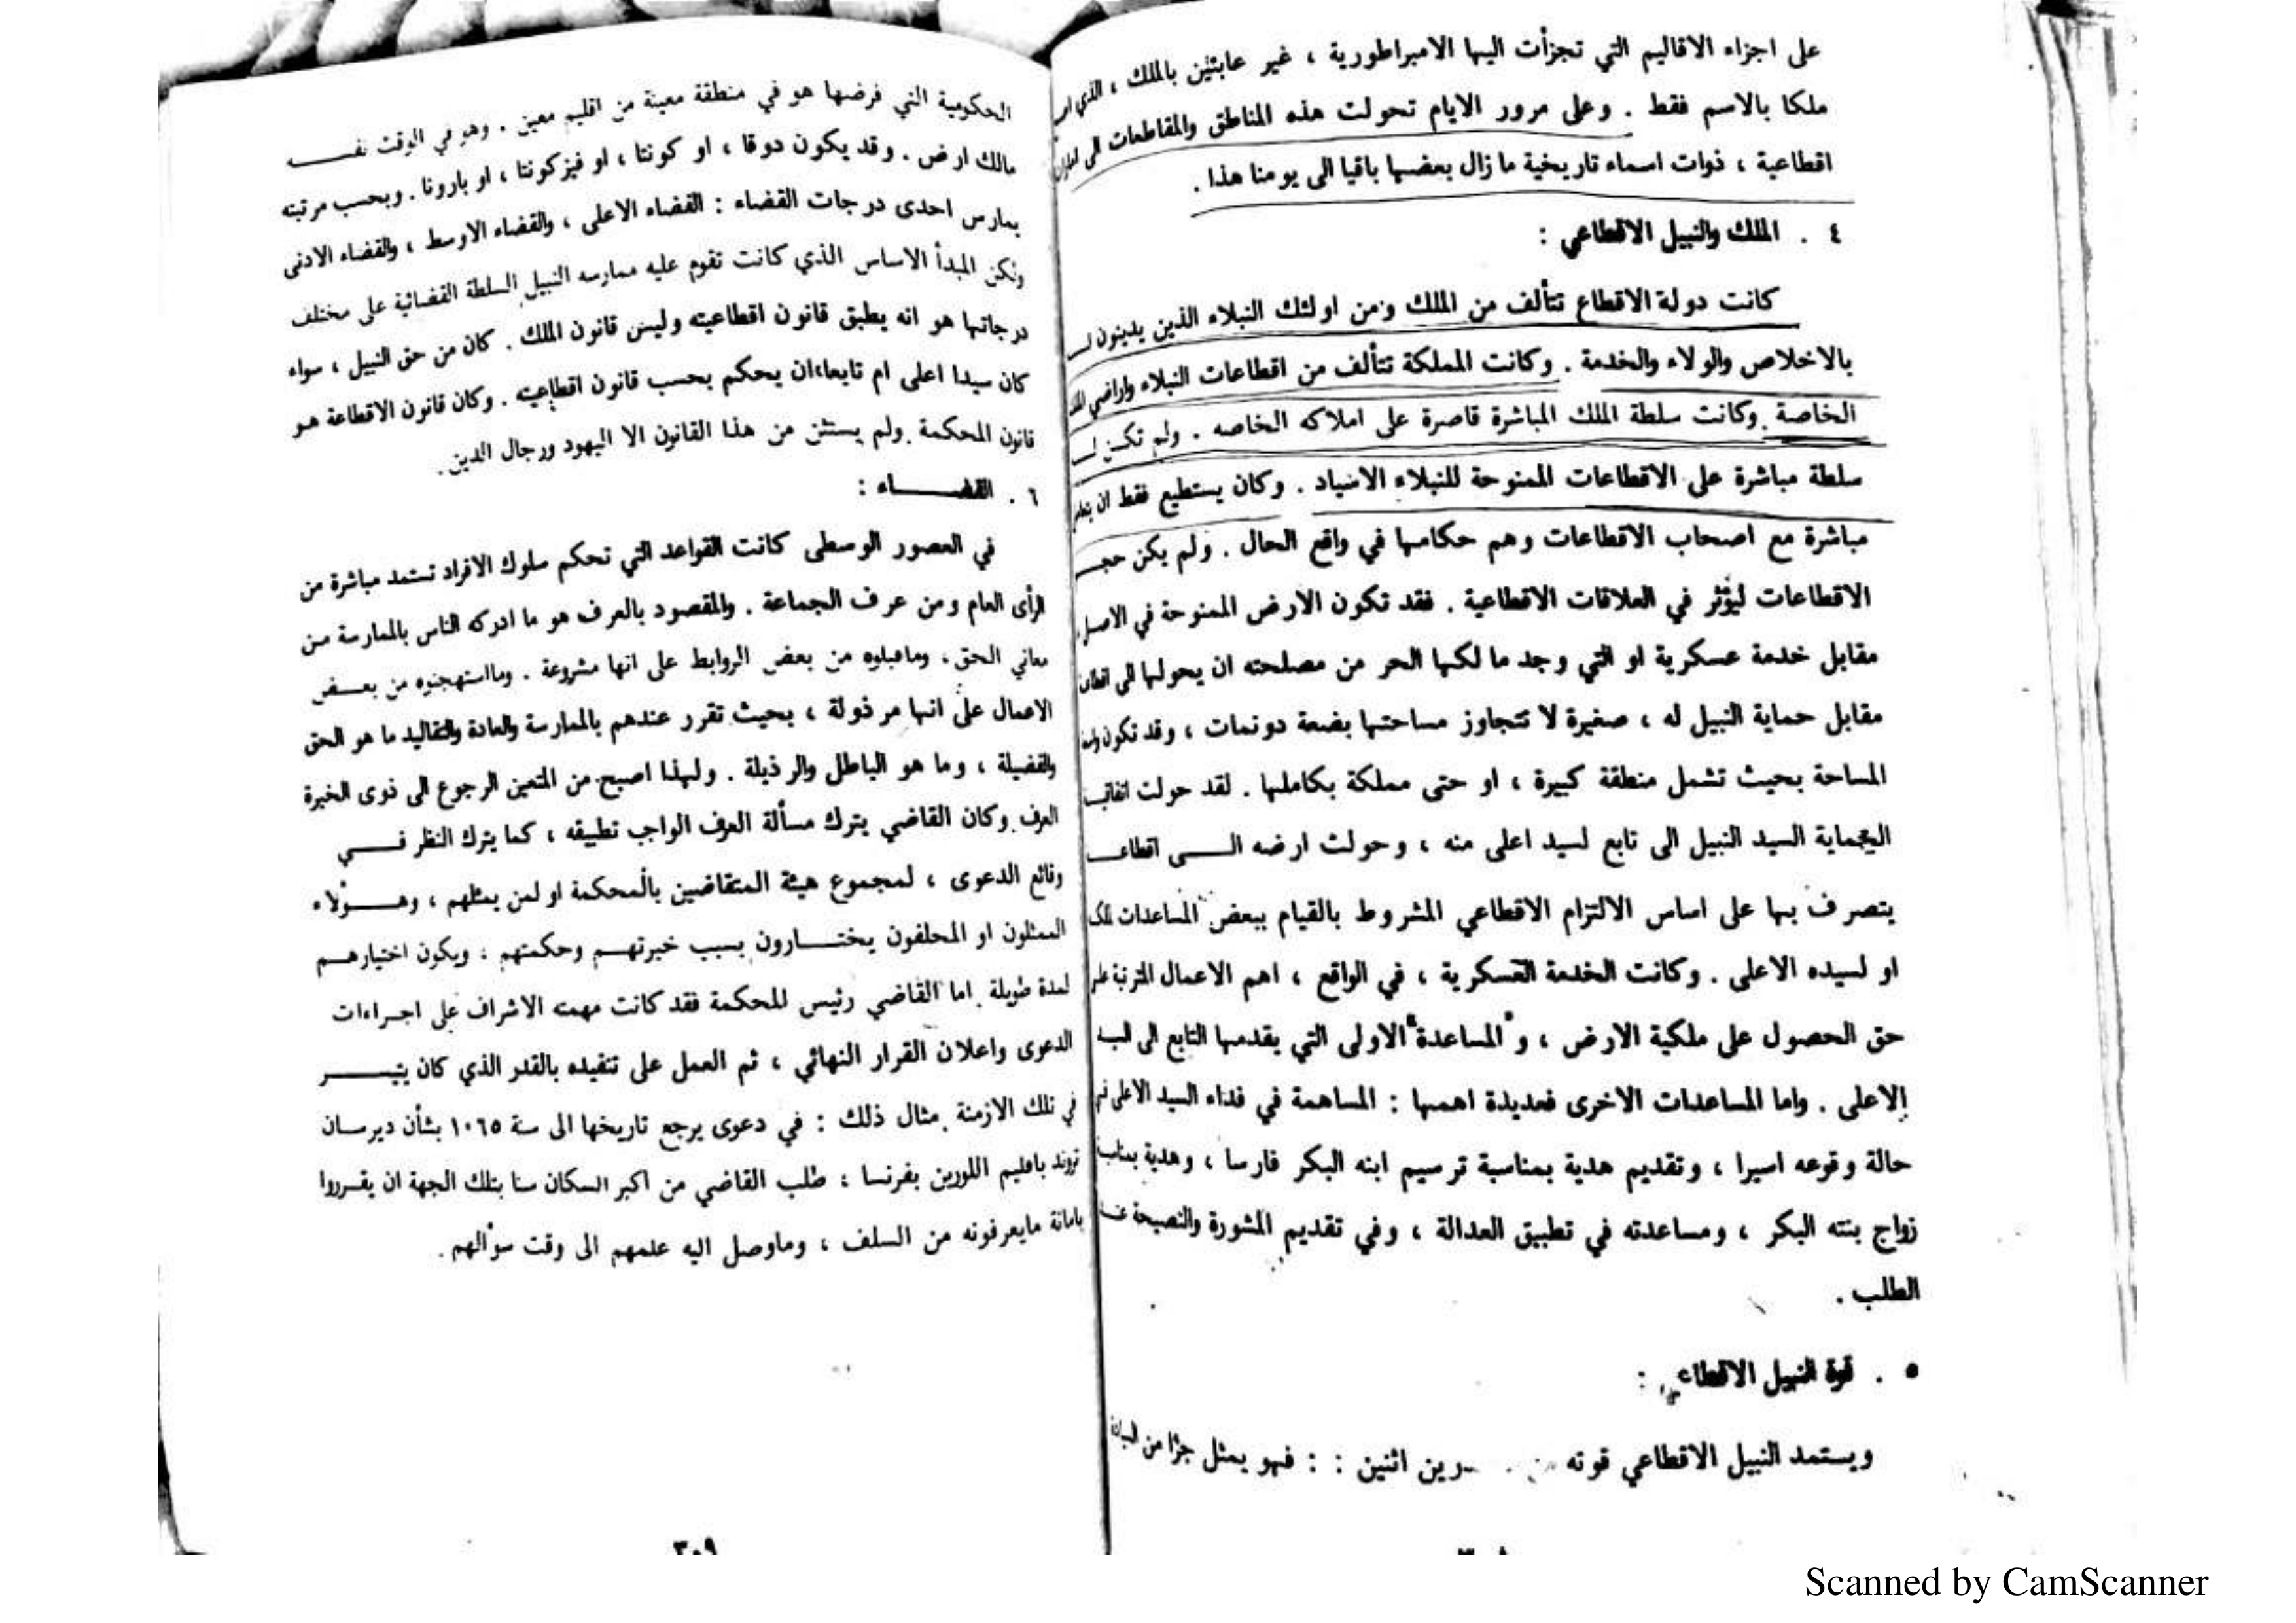 على اجزاء الاقاليم التي تجزأت اليها الامبراطورية ، غير عابئين بالملك ، الذي
ملكا بالاسم فقط . وعلى مرور الايام تحولت هذه المناطق والمقاطعات الى
اقطاعية ، ذوات اسماء تاريخية ما زال بعضها باقيا الى يومنا هذا .
٤ . الملك والنبيل الاقطاعي :
كانت دولة الاقطاع تتألف من الملك ومن اولئك النبلاء الذين يدينون لـــ
بالاخلاص والولاء والخدمة . وكانت المملكة تتألف من اقطاعات النبلاء واراضي
الخاصة . وكانت سلطة الملك المباشرة قاصرة على املاكه الخاصه . ولم تكـن لــ
سلطة مباشرة على الاقطاعات الممنوحة للنبلاء الاسياد . وكان يستطيع فقط ان
مباشرة مع اصحاب الاقطاعات وهم حكامها في واقع الحال . ولم يكن حجــ
الاقطاعات ليؤثر في العلاقات الاقطاعية . فقد تكون الارض الممنوحة في الاصل
مقابل خدمة عسكرية او التي وجد ما لكها الحر من مصلحته ان يحولها الى
مقابل حماية النبيل له ، صغيرة لا تتجاوز مساحتها بضعة دونمات ، وقد تكون
المساحة بحيث تشمل منطقة كبيرة ، او حتى مملكة بكاملها . لقد حولت
الحماية السيد النبيل الى تابع لسيد اعلى منه ، وحولت ارضه الـــى اقطاعــ
يتصرف بها على اساس الالتزام الاقطاعي المشروط بالقيام ببعض المساعدات
او لسيده الاعلى . وكانت الخدمة العسكرية ، في الواقع ، اهم الاعمال المترتبة
حق الحصول على ملكية الارض ، و"المساعدة" الاولى التي يقدمها التابع الى
الاعلى . واما المساعدات الاخرى فعديدة اهمها : المساهمة في فداء السيد الاعلى في
حالة وقوعه اسيرا ، وتقديم هدية بمناسبة ترسيم ابنه البكر فارسا ، وهدية
زواج بنته البكر ، ومساعدته في تطبيق العدالة ، وفي تقديم المشورة والنصيحة
الطلب .
٥ . قوة النبيل الاقطاعي :
ويستمد النبيل الاقطاعي قوته اثنين : : فهو يمثل جزًا من
الحكومية التي فرضها هو في منطقة معينة من اقليم معين . وهو في الوقت نفســـه
مالك ارض . وقد يكون دوقا ، او كونتا ، او فيزكونتا ، او بارونا . وبحسب مرتبته
يمارس احدى درجات القضاء : القضاء الاعلى ، والقضاء الاوسط ، والقضاء الادنى
ولكن المبدأ الاساس الذي كانت تقوم عليه ممارسه النبيل السلطة القضائية على مختلف
درجاتها هو انه يطبق قانون اقطاعيته وليس قانون الملك . كان من حق النبيل ، سواء
كان سيدا اعلى ام تابعا،ان يحكم بحسب قانون اقطاعيته . وكان قانون الاقطاعة هـو
قانون المحكمة . ولم يستثن من هذا القانون الا اليهود ورجال الدين .
٦ . القضـــاء :
في العصور الوسطى كانت القواعد التي تحكم سلوك الافراد تستمد مباشرة من
الرأى العام ومن عرف الجماعة . والمقصود بالعرف هو ما ادركه الناس بالممارسة مـن
معاني الحق ، وماقبلوه من بعض الروابط على انها مشروعة . ومااستهجنوه من بعــض
الاعمال على انها مرذولة ، بحيث تقرر عندهم بالممارسة والعادة والتقاليد ما هو الحق
والفضيلة ، وما هو الباطل والرذيلة . ولهذا اصبح من المتعين الرجوع الى ذوى الخبرة
العرف . وكان القاضي يترك مسألة العرف الواجب تطبيقه ، كما يترك النظر فــــي
وقائع الدعوى ، لمجموع هيئة المتقاضين بالمحكمة او لمن يمثلهم ، وهـــؤلاء
الممثلون او المحلفون يختـــارون بسبب خبرتهـم وحكمتهم ، ويكون اختيارهـــم
لمدة طويلة . اما القاضي رئيس المحكمة فقد كانت مهمته الاشراف على اجـراءات
الدعوى واعلان القرار النهائي ، ثم العمل على تنفيذه بالقدر الذي كان يتيســـر
في تلك الازمنة . مثال ذلك : في دعوى يرجع تاريخها الى سنة ١٠٦٥ بشأن ديرسـان
باقليم اللورين بفرنسا ، طلب القاضي من اكبر السكان سنا بتلك الجهة ان يقـرروا
بامانة مايعرفونه من السلف ، وماوصل اليه علمهم الى وقت سؤالهم .
٣٠٩
Scanned by CamScanner